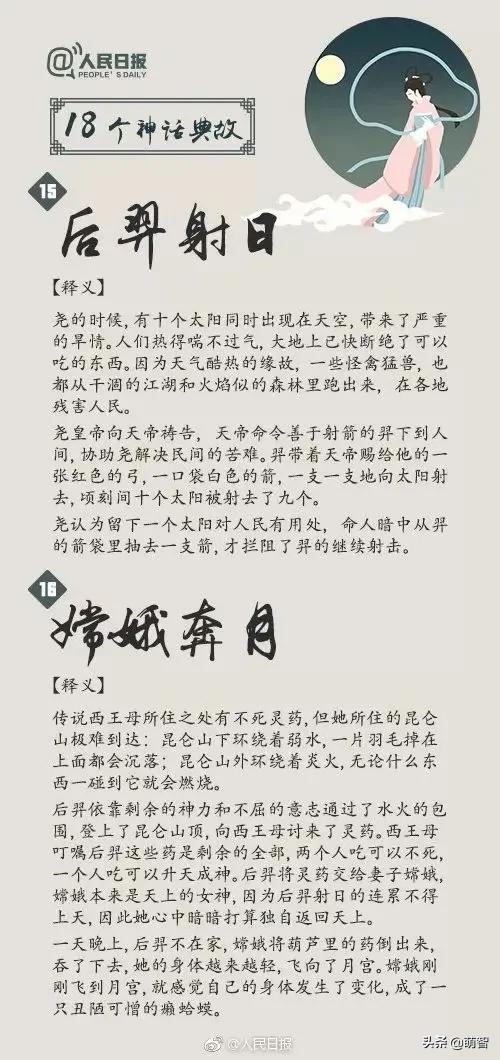 @人民日报
PEOPLE'S DAILY
18个神话典故
15
后羿射日
【释义】
尧的时候,有十个太阳同时出现在天空,带来了严重
的旱情。人们热得喘不过气,大地上已快断绝了可以
吃的东西。因为天气酷热的缘故,一些怪禽猛兽,也
都从干涸的江湖和火焰似的森林里跑出来,在各地
残害人民。
尧皇帝向天帝祷告,天帝命令善于射箭的羿下到人
间,协助尧解决民间的苦难。羿带着天帝赐给他的一
张红色的弓,一口袋白色的箭,一支一支地向太阳射
去,顷刻间十个太阳被射去了九个。
尧认为留下一个太阳对人民有用处,命人暗中从羿
的箭袋里抽去一支箭,才拦阻了羿的继续射击。
16
嫦娥奔月
【释义】
传说西王母所住之处有不死灵药,但她所住的昆仑
山极难到达:昆仑山下环绕着弱水,一片羽毛掉在
上面都会沉落;昆仑山外环绕着炎火,无论什么东
西一碰到它就会燃烧。
后羿依靠剩余的神力和不屈的意志通过了水火的包
围,登上了昆仑山顶,向西王母讨来了灵药。西王母
叮嘱后羿这些药是剩余的全部,两个人吃可以不死,
一个人吃可以升天成神。后羿将灵药交给妻子嫦娥,
嫦娥本来是天上的女神,因为后羿射日的连累不得
上天,因此她心中暗暗打算独自返回天上。
一天晚上,后羿不在家,嫦娥将葫芦里的药倒出来,
吞了下去,她的身体越来越轻,飞向了月宫。嫦娥刚
刚飞到月宫,就感觉自己的身体发生了变化,成了一
只丑陋可憎的癞蛤蟆。
@人民日报
头条@萌智